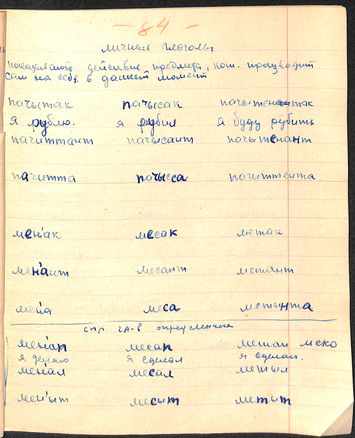 - 84 -
личные глаголы
показывают действие предмета, кот. производит
сам на себя в данный момент
пачытак пачысак почытенытак
я рублю. я рубил я буду рубить
пачиттант пачысант почытенант
пачитта пачыса пачиттента
мен'ак месак метак
менаит месант метант
мен'а меса метынта
спр. гл-в определенная
мен'ап месап метап мско
я делаю я сделал я сделаю.
мен'ал месал метыл
мен'ыт месыт метыт